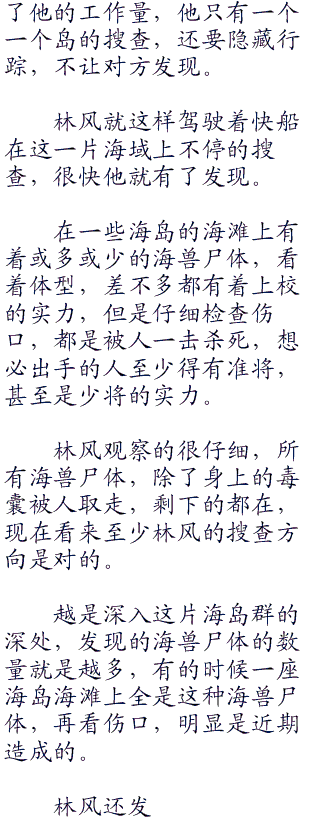 了他的工作量，他只有一个
一个岛的搜查，还要隐藏行
踪，不让对方发现。
林风就这样驾驶着快船
在这一片海域上不停的搜
查，很快他就有了发现。
在一些海岛的海滩上有
着或多或少的海兽尸体，看
着体型，差不多都有着上校
的实力，但是仔细检查伤
口，都是被人一击杀死，想
必出手的人至少得有准将，
甚至是少将的实力。
林风观察的很仔细，所
有海兽尸体，除了身上的毒
囊被人取走，剩下的都在，
现在看来至少林风的搜查方
向是对的。
越是深入这片海岛群的
深处，发现的海兽尸体的数
量就是越多，有的时候一座
海岛海滩上全是这种海兽尸
体，再看伤口，明显是近期
造成的。
林风还发